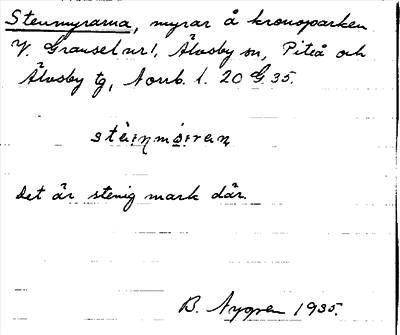 Stenmyrarna, myrar å kronoparken
V. Granselnr 1, Älvsby sn, Piteå och
Älvsby tg, Norrb. l. 20 G 35.
stèi̯ṇmøi̯ran
Det är stenig mark där.
B. Nygren 1935.